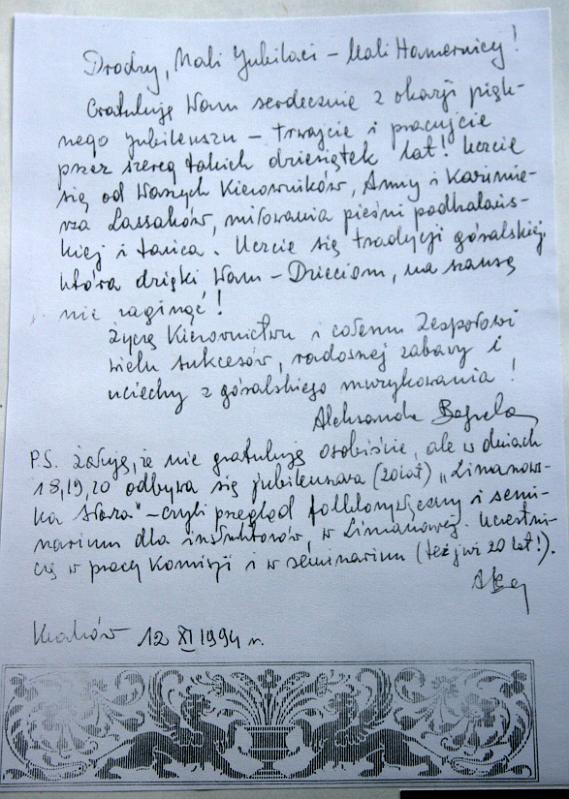 Drodzy, Mali Jubilaci – Mali Hamernicy!
Gratuluję Wam serdecznie z okazji pięk-
nego jubileuszu – trwajcie i pracujcie
przez szereg takich dziesiątek lat! Uczcie
się od Waszych Kierowników, Anny i Kazimie-
rza Lassaków, miłowania pieśni podhalańs-
kiej i tańca. Uczcie się tradycji góralskiej,
która dzięki Wam – Dzieciom, ma szansę
nie zaginąć!
Życzę Kierownictwu i całemu Zespołowi
wielu sukcesów, radosnej zabawy i
uciechy z góralskiego muzykowania!
Aleksandra
P.S. Żałuję, że nie gratuluję osobiście, ale w dniach
18,19,20 odbywa się jubileuszowa (20 lat) „Limanows-
ka Słaza" – czyli przegląd folklorystyczny i semi-
narium dla instruktorów w Limanowej. Uczestni-
czę w pracy Komisji i w seminarium (też już 20 lat!).
Kraków 12 XI 1994 r.